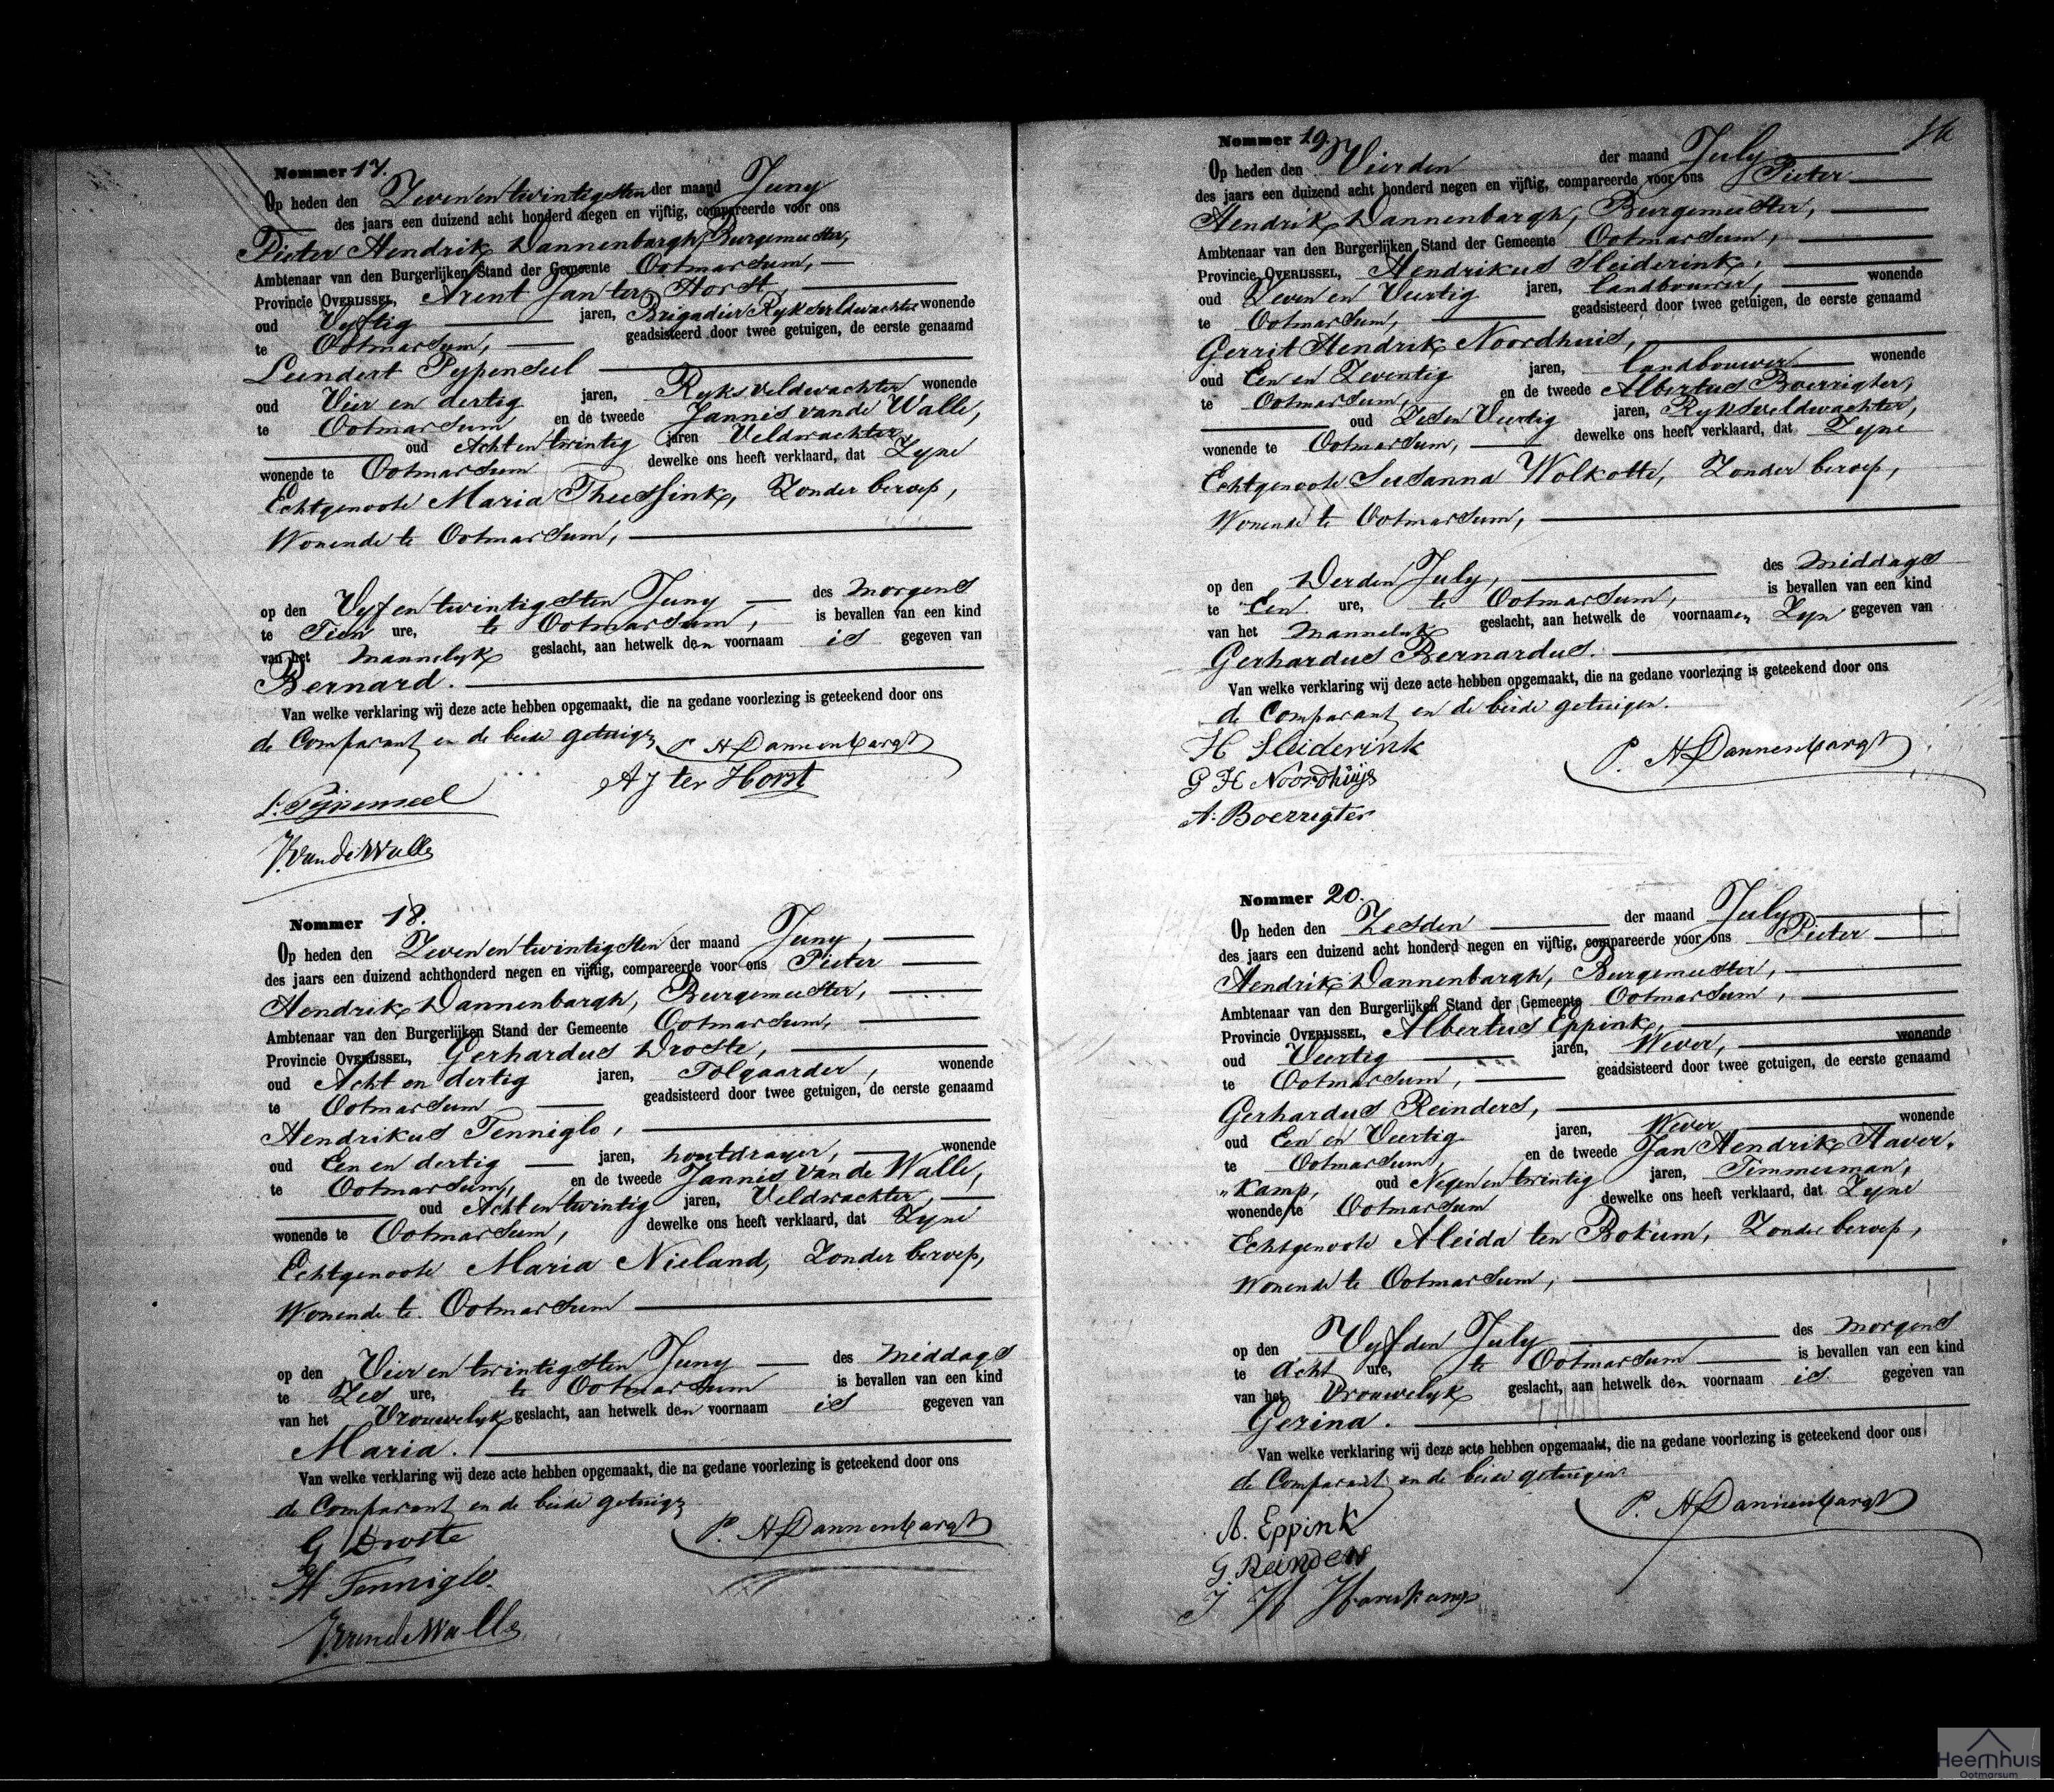 Nommer 17.
Op heden den Zeven en twintigsten der maand Juny
des jaars een duizend acht honderd negen en vijftig, compareerde voor ons
Pieter Hendrik Dannenbargh, Burgemeester,
Ambtenaar van den Burgerlijken Stand der Gemeente Ootmarsum,
Provincie OVERIJSSEL, Arent Jan ter Horst,
oud Vyftig jaren, Brigadier Ryksveldwachter wonende
te Ootmarsum, geadsisteerd door twee getuigen, de eerste genaamd
Leendert Pypenseel
oud Vier en dertig jaren, Ryksveldwachter wonende
te Ootmarsum en de tweede Jannis van de Walle,
oud Acht en twintig jaren Veldwachter,
wonende te Ootmarsum dewelke ons heeft verklaard, dat Zyne
Echtgenoote Maria Theussink, Zonder beroep,
Wonende te Ootmarsum,
op den Vyf en twintigsten Juny des Morgens
te Tien ure, te Ootmarsum, is bevallen van een kind
van het Mannelyk geslacht, aan hetwelk den voornaam is gegeven van
Bernard.
Van welke verklaring wij deze acte hebben opgemaakt, die na gedane voorlezing is geteekend door ons
de Comparant en de beide getuigen
P. H Dannenbargh
A J ter Horst
L. Pypenseel
J. van de Walle
Nommer 18.
Op heden den Zeven en twintigsten der maand Juny,
des jaars een duizend achthonderd negen en vijftig, compareerde voor ons Pieter
Hendrik Dannenbargh, Burgemeester,
Ambtenaar van den Burgerlijken Stand der Gemeente Ootmarsum,
Provincie OVERIJSSEL, Gerhardus Droste,
oud Acht en dertig jaren, Tolgaarder, wonende
te Ootmarsum geadsisteerd door twee getuigen, de eerste genaamd
Hendrikus Tenniglo,
oud Een en dertig jaren, houtdrayer, wonende
te Ootmarsum, en de tweede Jannis van de Walle,
oud Acht en twintig jaren, Veldwachter,
wonende te Ootmarsum, dewelke ons heeft verklaard, dat Zyne
Echtgenoote Maria Nieland, Zonder beroep,
Wonende te Ootmarsum
op den Vier en twintigsten Juny des Middags
te Zes ure, te Ootmarsum is bevallen van een kind
van het Vrouwelyk geslacht, aan hetwelk den voornaam is gegeven van
Maria.
Van welke verklaring wij deze acte hebben opgemaakt, die na gedane voorlezing is geteekend door ons
de Comparant en de beide getuigen
P. H Dannenbargh
G Droste
H Tenniglo.
J. van de Walle
Nommer 19.
Op heden den Vierden der maand July
des jaars een duizend acht honderd negen en vijftig, compareerde voor ons Pieter
Hendrik Dannenbargh, Burgemeester,
Ambtenaar van den Burgerlijken Stand der Gemeente Ootmarsum,
Provincie OVERIJSSEL, Hendrikus Sleiderink,
oud Zeven en Veertig jaren, landbouwer, wonende
te Ootmarsum, geadsisteerd door twee getuigen, de eerste genaamd
Gerrit Hendrik Noordhuis,
oud Een en Zeventig jaren, landbouwer wonende
te Ootmarsum, en de tweede Albertus Boerrigter,
oud Zes en Veertig jaren, Ryksveldwachter,
wonende te Ootmarsum, dewelke ons heeft verklaard, dat Zyne
Echtgenoote Susanna Wolkotte, Zonder beroep,
Wonende te Ootmarsum,
op den Derden July, des Middags
te Een ure, te Ootmarsum, is bevallen van een kind
van het Mannelyk geslacht, aan hetwelk de voornamen Zyn gegeven van
Gerhardus Bernardus.
Van welke verklaring wij deze acte hebben opgemaakt, die na gedane voorlezing is geteekend door ons
de Comparant en de beide getuigen.
H Sleiderink
P. H Dannenbargh
G H Noordhuijs
A. Boerrigter
Nommer 20.
Op heden den Zesden der maand July
des jaars een duizend acht honderd negen en vijftig, compareerde voor ons Pieter
Hendrik Dannenbargh, Burgemeester,
Ambtenaar van den Burgerlijken Stand der Gemeente Ootmarsum,
Provincie OVERIJSSEL, Albertus Eppink,
oud Veertig jaren, Wever, wonende
te Ootmarsum, geadsisteerd door twee getuigen, de eerste genaamd
Gerhardus Reinders,
oud Een en Veertig jaren, Wever wonende
te Ootmarsum, en de tweede Jan Hendrik Haver„
„kamp, oud Negen en twintig jaren, Timmerman,
wonende te Ootmarsum dewelke ons heeft verklaard, dat Zyne
Echtgenoote Aleida ten Bokum, Zonder beroep,
Wonende te Ootmarsum,
op den Vyfden July des Morgens
te Acht ure, te Ootmarsum is bevallen van een kind
van het Vrouwelyk geslacht, aan hetwelk den voornaam is gegeven van
Gezina.
Van welke verklaring wij deze acte hebben opgemaakt, die na gedane voorlezing is geteekend door ons
de Comparant en de beide getuigen
P. H Dannenbargh
A. Eppink
G Reinders
J H Haverkamp
Heemhuis
Ootmarsum